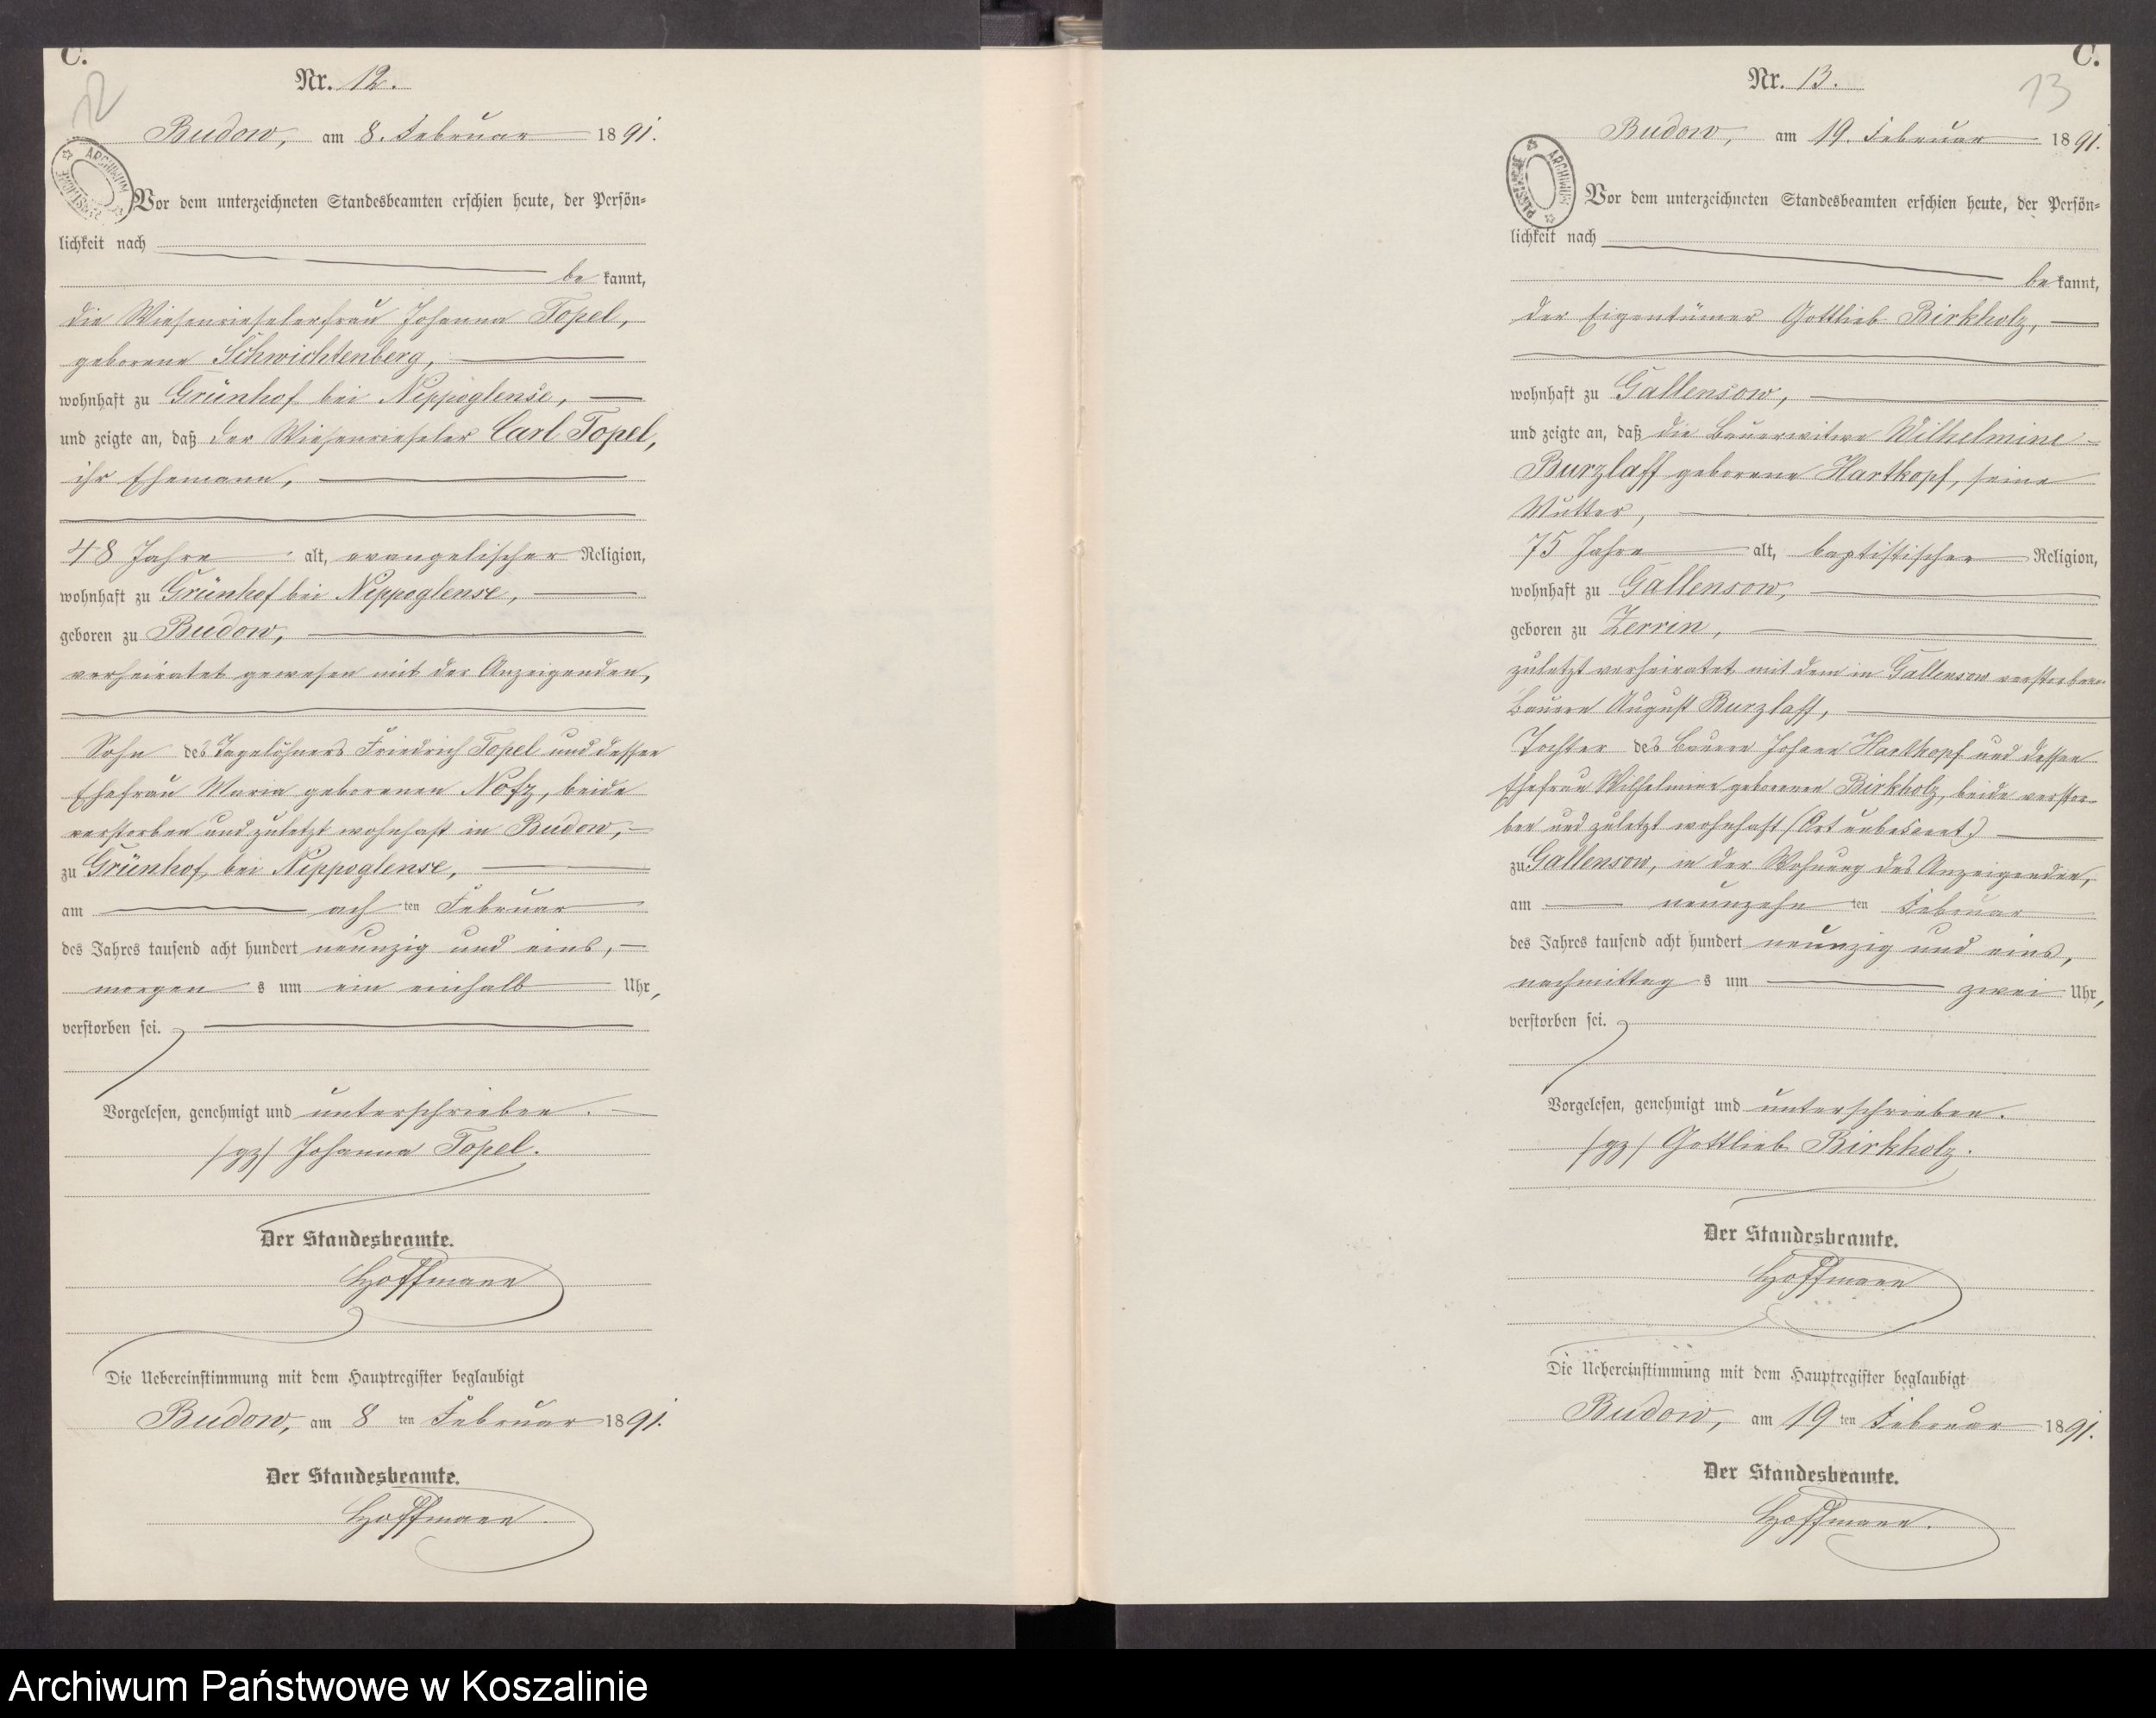 C.
12
Nr. 12.
Budow, am 8. Februar 1891.
ARCHIWUM PAŃSTWOWE
Vor dem unterzeichneten Standesbeamten erschien heute, der Persön-
lichkeit nach
bekannt,
die Wiesenrieselerfrau Johanna Topel,
geborene Schwichtenberg,
wohnhaft zu Grünhof bei Nippoglense,
und zeigte an, daß der Wiesenrieseler Carl Topel,
ihr Ehemann,
48 Jahre alt, evangelischer Religion,
wohnhaft zu Grünhof bei Nippoglense,
geboren zu Budow,
verheiratet gewesen mit der Anzeigenden,
Sohn des Tagelöhners Friedrich Topel und dessen
Ehefrau Maria geborenen Notz, beide
verstorben und zuletzt wohnhaft in Budow,
zu Grünhof, bei Nippoglense,
am achten Februar
des Jahres tausend acht hundert neunzig und eins,
morgens um ein einhalb Uhr,
verstorben sei.
Vorgelesen, genehmigt und unterschrieben.
/gz/ Johanna Topel.
Der Standesbeamte.
Hoffmann
Die Uebereinstimmung mit dem Hauptregister beglaubigt
Budow, am 8ten Februar 1891.
Der Standesbeamte.
Hoffmann.
C.
13
Nr. 13.
Budow, am 19. Februar 1891.
ARCHIWUM PAŃSTWOWE
Vor dem unterzeichneten Standesbeamten erschien heute, der Persön-
lichkeit nach
bekannt,
der Eigentümer Gottlieb Birkholz,
wohnhaft zu Gallensow,
und zeigte an, daß die Bauerwitwe Wilhelmine
Burzlaff geborene Hartkopf, seine
Mutter,
75 Jahre alt, baptistischer Religion,
wohnhaft zu Gallensow,
geboren zu Zerrin,
zuletzt verheiratet mit dem in Gallensow verstorben.
Bauern August Burzlaff,
Tochter des Bauern Johann Hartkopf und dessen
Ehefrau Wilhelmine geborenen Birkholz, beide verstor-
ben und zuletzt wohnhaft (Ort unbekannt)
zu Gallensow, in der Wohnung des Anzeigenden,
am neunzehnten Februar
des Jahres tausend acht hundert neunzig und eins,
nachmittags um zwei Uhr,
verstorben sei.
Vorgelesen, genehmigt und unterschrieben.
/gz/ Gottlieb Birkholz.
Der Standesbeamte.
Hoffmann
Die Uebereinstimmung mit dem Hauptregister beglaubigt
Budow, am 19ten Februar 1891.
Der Standesbeamte.
Hoffmann.
Archiwum Państwowe w Koszalinie